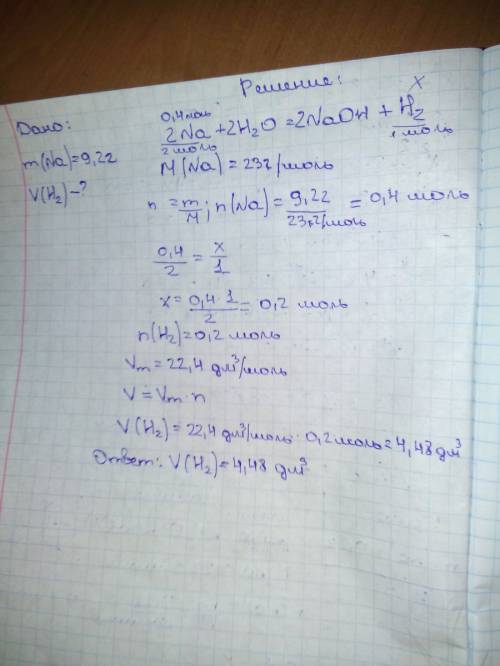 Решение:
Дано:
m(Na)=9,2г
V(H₂)-?
0,4моль x
2Na+2H₂O=2NaOH + H₂
2моль 1 моль
M(Na) = 23г/моль
n = m/M; n(Na) = 9,2г/23г/моль = 0,4 моль
0,4/2 = x/1
x = 0,4·1/2 = 0,2 моль
n(H₂)=0,2 моль
Vm = 22,4 дм³/моль
V = Vm·n
V(H₂)=22,4 дм³/моль·0,2моль=4,48дм³
Ответ: V(H₂)=4,48 дм³